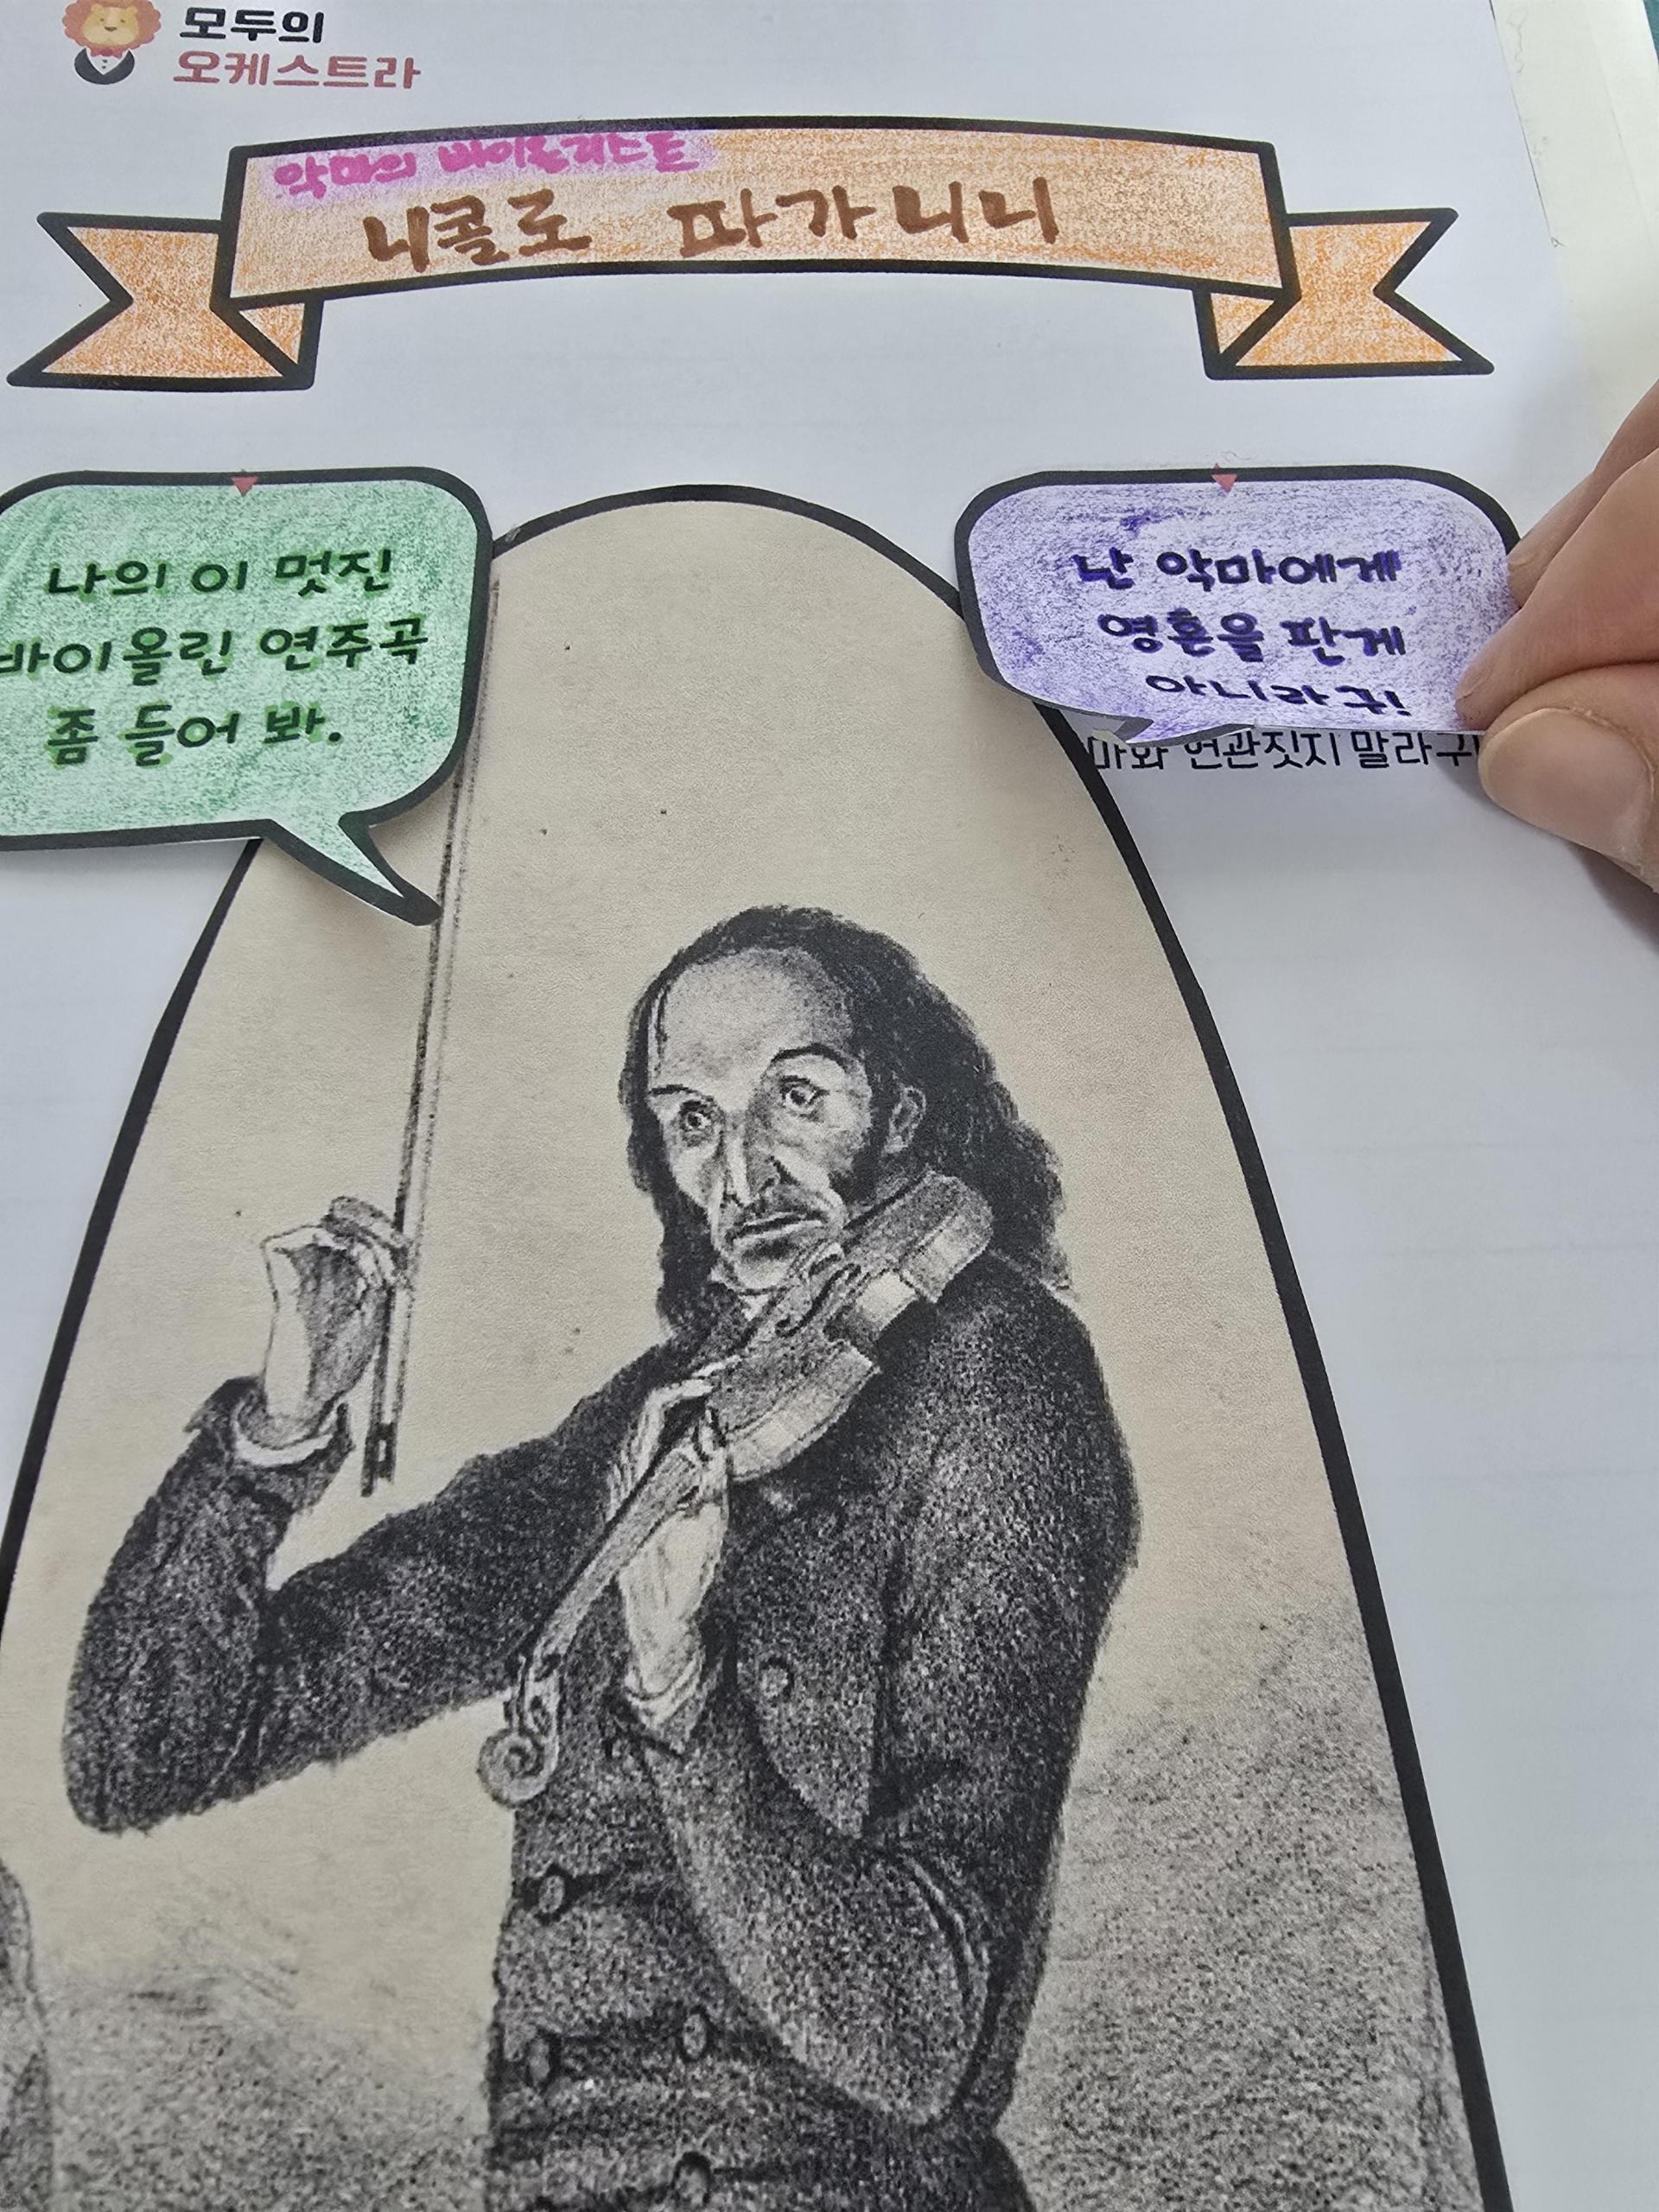 모두의
오케스트라
악마의 바이올리스트
니콜로 파가니니
나의 이 멋진
바이올린 연주곡
좀 들어 봐.
난 악마에게
영혼을 판게
아니라구!
연관짓지 말라구!